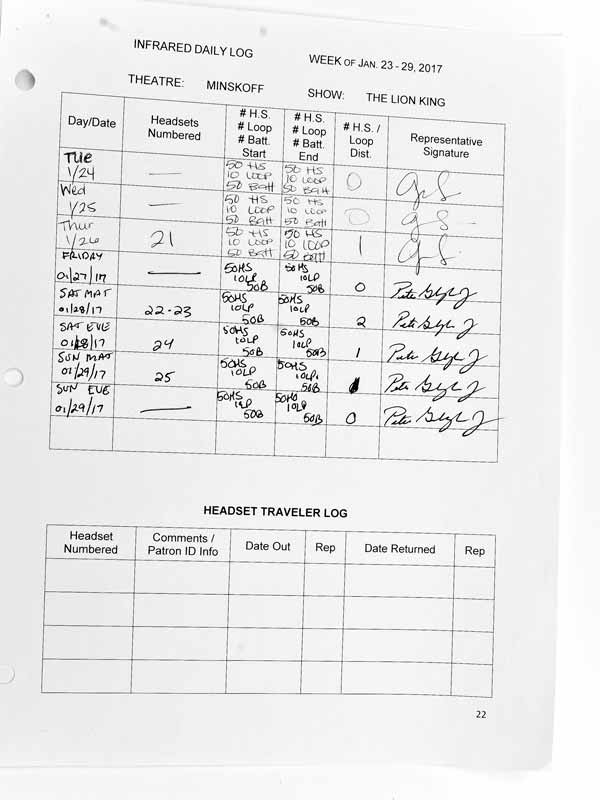 INFRARED DAILY LOG
WEEK OF JAN. 23 - 29, 2017
THEATRE: MINSKOFF
SHOW: THE LION KING
Day/Date
Headsets
Numbered
# H.S.
# Loop
# Batt.
Start
# H.S.
# Loop
# Batt.
End
# H.S. /
Loop
Dist.
Representative
Signature
TUE
1/24
—
50 HS
10 LOOP
50 BaTT
50 HS
10 LOOP
50 BaTT
0
Wed
1/25
—
50 HS
10 LOOP
50 BaTT
50 HS
10 LOOP
50 BaTT
0
Thur
1/26
21
50 HS
10 LOOP
50 BaTT
50 HS
10 LOOP
50 BaTT
1
FRIDAY
01/27/17
—
50HS
10LP
50B
50HS
10LP
50B
0
SAT MAT
01/28/17
22-23
50HS
10LP
50B
50HS
10LP
50B
2
SAT EVE
01/28/17
24
50HS
10LP
50B
50HS
10LP
50B
1
SUN MAT
01/29/17
25
50HS
10LP
50B
50HS
10LP
50B
1
SUN EVE
01/29/17
—
50HS
10LP
50B
10LP
50B
0
HEADSET TRAVELER LOG
Headset
Numbered
Comments /
Patron ID Info
Date Out
Rep
Date Returned
Rep
22